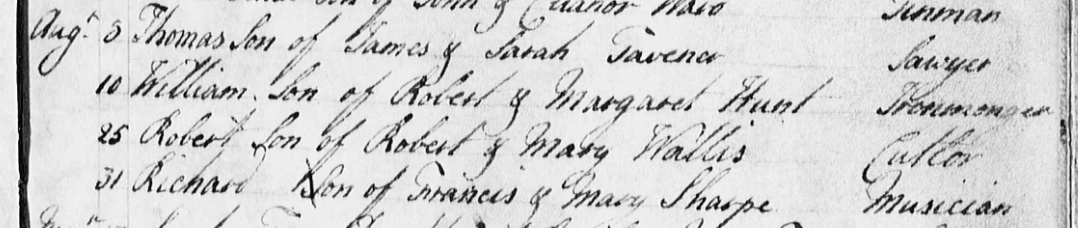 Son of John & Eleanor Ward Tinman
Augt. 3 Thomas Son of James & Sarah Tavener Sawyer
10 William Son of Robert & Margaret Hunt Ironmonger
25 Robert Son of Robert & Mary Wallis Cuttler
31 Richard Son of Francis & Mary Sharpe Musician